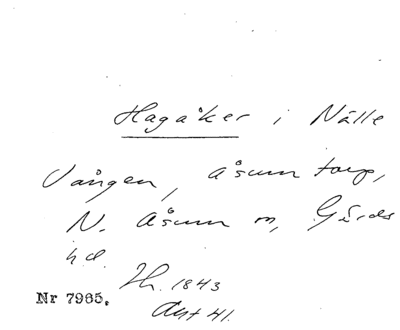 Hagåker i Nälle
Vången, Åsum torp,
N. Åsum sn, Gärds
hd.
Nr 7965.
1843
Akt 41.